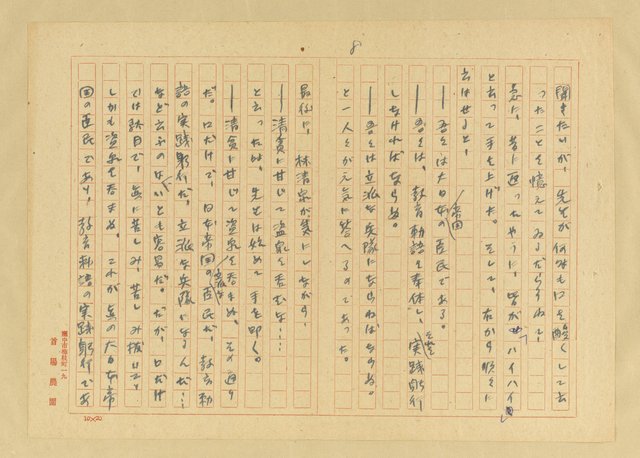 8
聞きたいが、先生が何時も口を酸くして云
つたことを憶えてゐるだらうね――
急に、昔に返つたやうに、皆がハイハイ
と云つて手を上げた。そして、右から順々に
云はせると、
――吾々は大日本帝国の臣民である。
――吾々は、教育勅語を奉体し、実践躬行
しなければならぬ。
――吾々は立派な兵隊にならねばならぬ。
と一人々々が元気に答へるのであつた。
最后に、林清泉が
――清貧に甘じて盗泉を呑むな……
と云つた時、先生は始めて手を叩く。
――清貧に甘じて盗泉を呑まぬ。その通り
だ。口だけで、日本帝国の臣民だ、教育勅
語の実践躬行だ、立派な兵隊になるんだ……
などと云ふのはいとも容易だ。だが、口だけ
では駄目で、無に苦しみ、苦しみ抜いて、
しかも盗泉を呑まぬ。これが真の大日本帝
国の臣民であり、教育勅語の実践躬行であ
首場農園
20×20